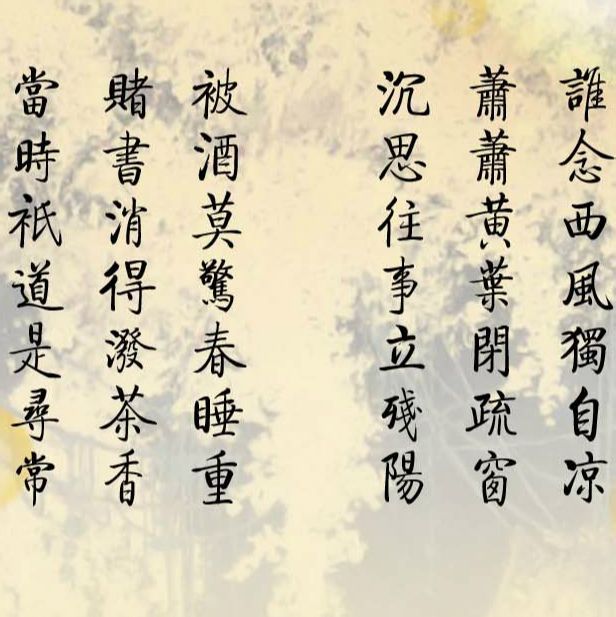 誰念西風獨自凉
蕭蕭黄葉閉疏窗
沉思往事立殘陽
被酒莫驚春睡重
賭書消得潑茶香
當時衹道是尋常